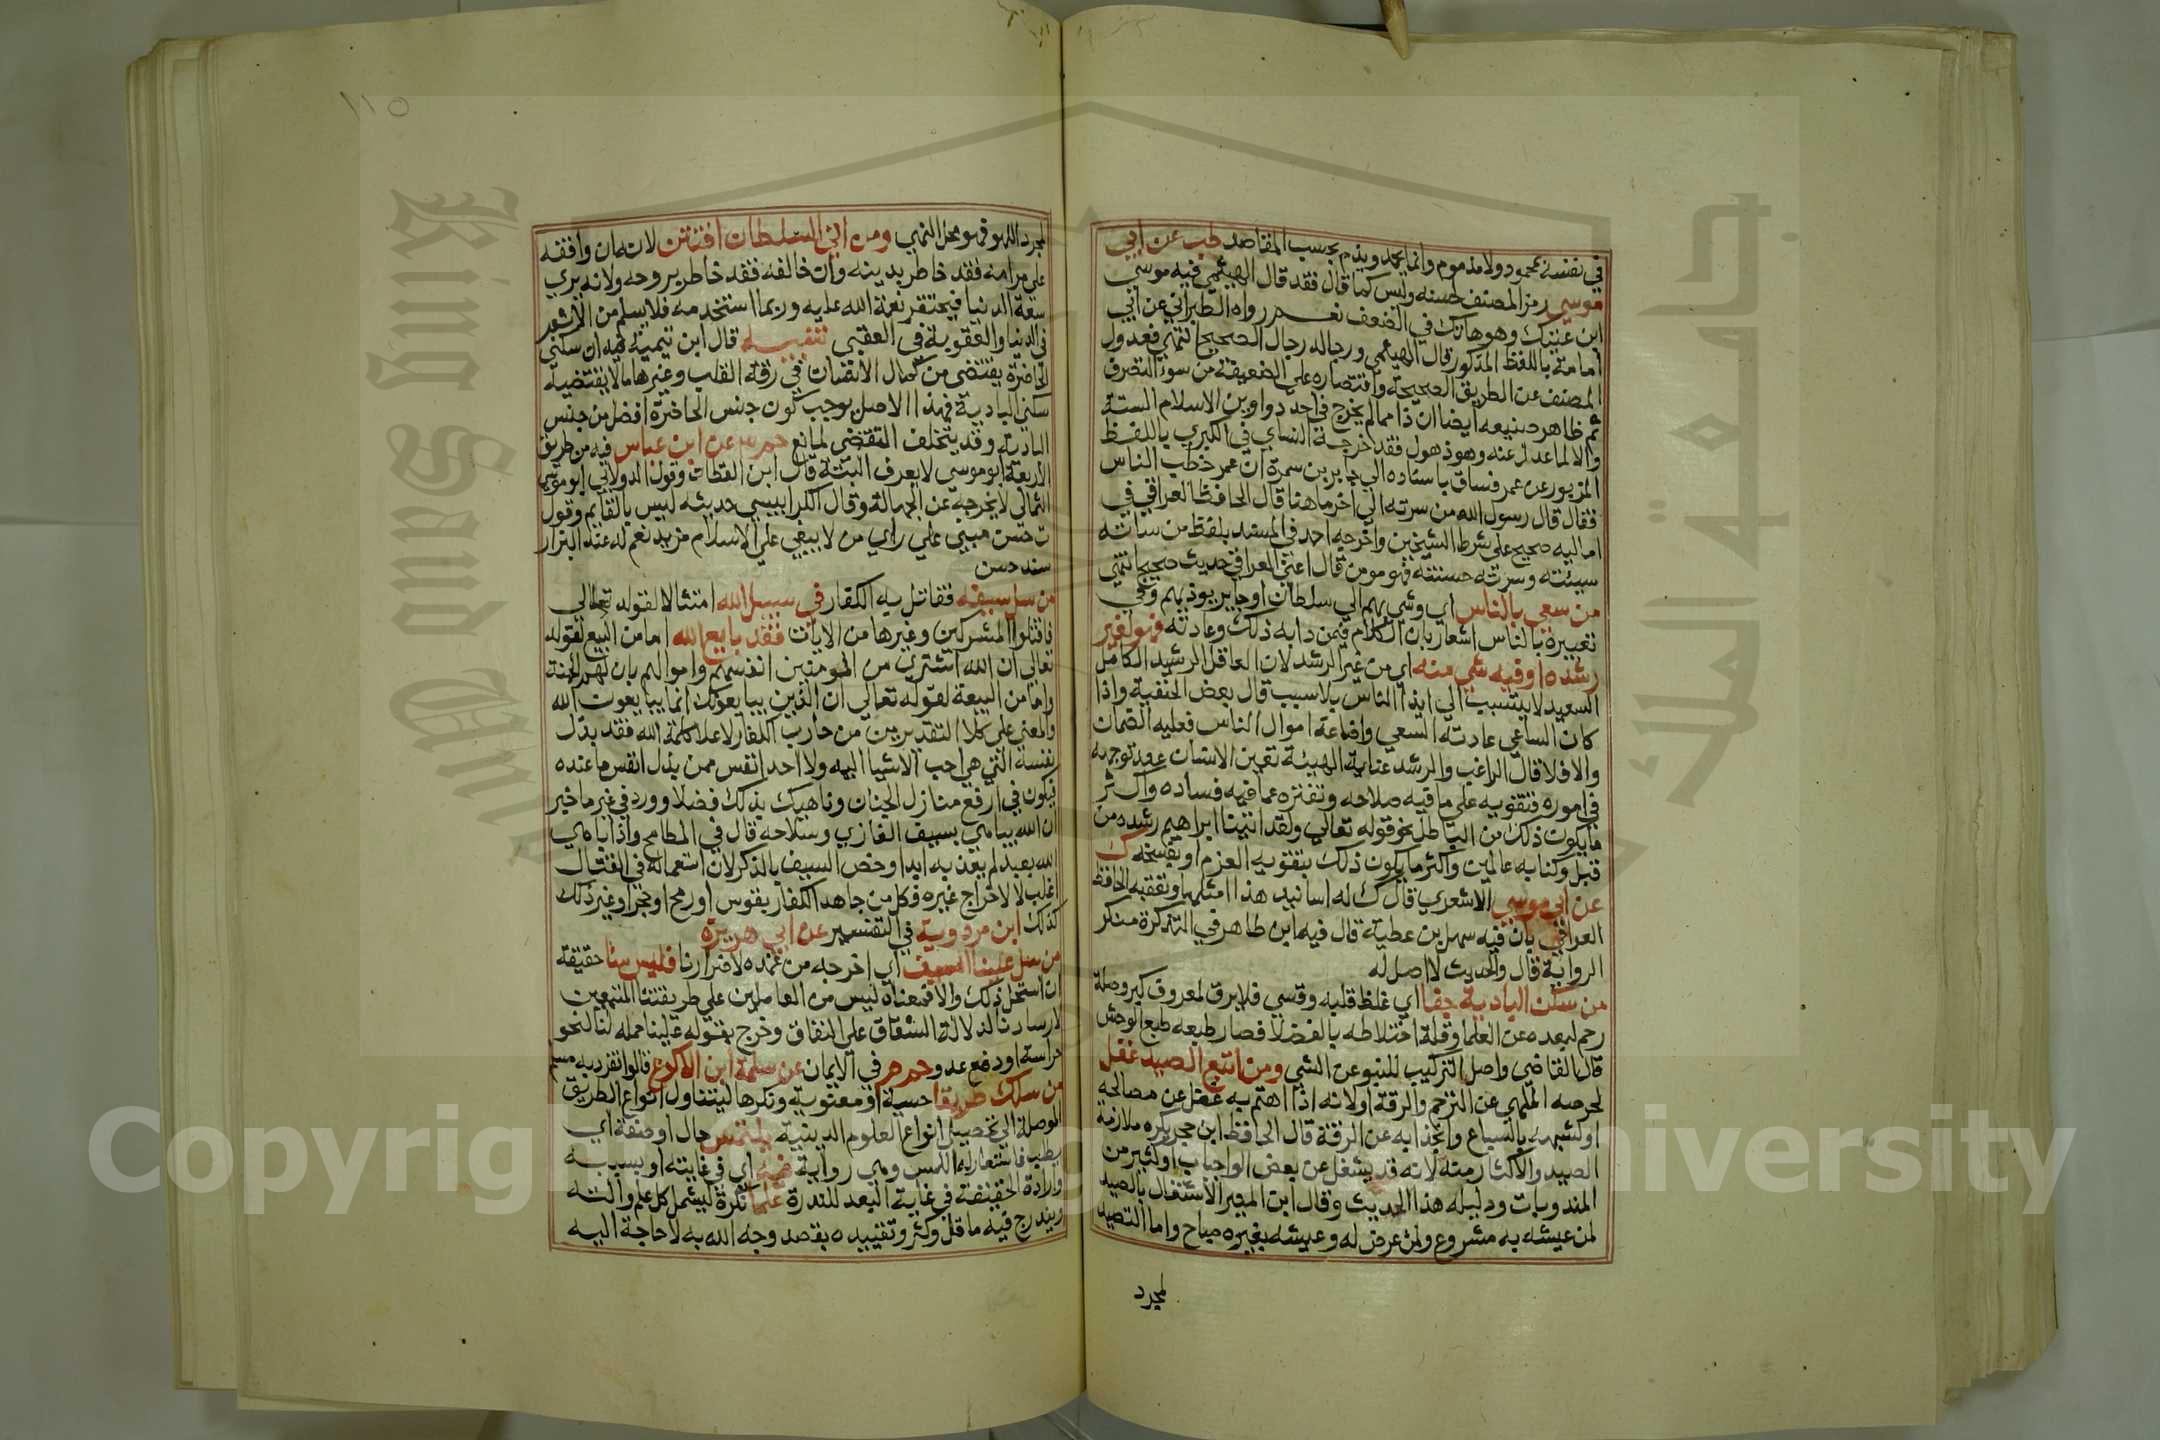 في نفسه بمحمود ولا مذموم وانما يحمد ويذم بحسب المقاصد طب عن ابي
موسى رمز المصنف لحسنه وليس كما قال فقد قال الهيثمي فيه موسى
ابن عتيك وهو هالك في الضعف نعم رواه الطبراني عن ابي
امامة باللفظ المذكور قال الهيثمي ورجاله رجال الصحيح انتهى فعدول
المصنف عن الطريق الصحيحة واقتصاره على الضعيفة من سوء التصرف
ثم ظاهر صنيعه ايضا ان ذا مما لم يخرج في احد دواوين الاسلام الستة
والا لما عدل عنه وهو ذهول فقد خرجه النساي في الكبرى باللفظ
المزبور عن عمر فساق باسناده الى جابر بن سمرة ان عمر خطب الناس
فقال قال رسول الله من سرته الى اخر ما هنا قال الحافظ العراقي في
اماليه صحيح على شرط الشيخين واخرجه احمد في المسند بلفظ من ساته
سيئته وسرته حسنته فهو مومن قال اعني العراقي حديث صحيح انتهى
من سعى بالناس اي وشي بهم الى سلطان او جاير يوذيهم وفي
تعبيره بالناس اشعار بان الكلام فيمن دابه ذلك وعادته فهو لغير
رشده او فيه شي منه اي من غير الرشد لان العاقل الرشيد الكامل
السعيد لا يتسبب الى ايذا الناس بلا سبب قال بعض الحنفية واذا
كان الساعي عادته السعي واضاعة اموال الناس فعليه الضمان
والا فلا قال الراغب والرشد عناية الهيئة تعين الانسان عند توجهه
في اموره فتقويه على ما فيه صلاحه وتفتره عما فيه فساده واكثر
ما يكون ذلك من الباطن نحو قوله تعالى ولقد اتينا ابراهيم رشده من
قبل وكنا به عالمين واكثر ما يكون ذلك بتقوية العزم او بفسخه ك
عن ابي موسى الاشعري قال ك له اسانيد هذا امثلها وتعقبه الحافظ
العراقي بان فيه سهل بن عطية قال فيه ابن طاهر في التذكرة منكر
الرواية قال والحديث لا اصل له
من سكن البادية جفا اي غلظ قلبه وقسي فلا يرق لمعروف كبر وصلة
رحم لبعده عن العلما وقلة اختلاطه بالفضلا فصار طبعه طبع الوحش
قال القاضي واصل التركيب للنبو عن الشي ومن اتبع الصيد غفل
لحرصه الملهي عن الترحم والرقة او لانه اذا اهتم به غفل عن مصالحه
او لشبهه بالسباع وانجذابه عن الرقة قال الحافظ ابن حجر يكره ملازمة
الصيد والاكثار منه لانه قد يشغل عن بعض الواجبات وكثير من
المندوبات ودليله هذا الحديث وقال ابن المنير الاشتغال بالصيد
لمن عيشه به مشروع ولمن عرض له وعيشه بغيره مباح واما التصيد
لمجرد
١١٥
لمجرد اللهو فهو محل النهي ومن اتى السلطان افتتن لانه ان وافقه
على مرامه فقد خاطر بدينه وان خالفه فقد خاطر بروحه ولانه يرى
سعة الدنيا فيحتقر نعمة الله عليه وربما استخدمه فلا يسلم من الاثم
في الدنيا والعقوبة في العقبى تنبيه قال ابن تيمية فيه ان سكنى
الحاضرة يقتضي من كمال الانسان في رقة القلب وغيرها ما لا يقتضيه
سكنى البادية فهذا الاصل يوجب كون جنس الحاضرة افضل من جنس
البادية وقد يتخلف المقتضى لمانع حم عن ابن عباس فيه من طريق
الاربعة ابو موسى لا يعرف البتة قال ابن القطان وقول الدولابي ابو موسى
اليماني لا يخرجه عن الجهالة وقال الكرابيسي حديثه ليس بالقايم وقول
ت حسن مبني على راي من لا يبغي على الاسلام مزيد نعم له عند البزار
سند حسن
من سل سيفه فقاتل به الكفار في سبيل الله امتثالا لقوله تعالى
فاقتلوا المشركين وغيرها من الايات فقد بايع الله اما من البيع لقوله
تعالى ان الله اشترى من المومنين انفسهم واموالهم بان لهم الجنة
واما من البيعة لقوله تعالى ان الذين يبايعونك انما يبايعون الله
والمعنى على كلا التقديرين من حارب الكفار لاعلا كلمة الله فقد بذل
نفسه التي هي احب الاشيا اليه ولا احد انفس ممن بذل انفس ما عنده
فيكون في ارفع منازل الجنان وناهيك بذلك فضلا وورد في غير ما خبر
ان الله يباهي بسيف الغازي وسلاحه قال في المطامح واذا باهى
الله بعبد لم يعذبه ابدا وخص السيف بالذكر لان استعماله في القتال
اغلب لا لاخراج غيره فكل من جاهد الكفار بقوس او رمح او خنجر او غير ذلك
كذلك ابن مردويه في التفسير عن ابي هريرة
من سل علينا السيف اي اخرجه من غمده لاضرارنا فليس منا حقيقة
ان استحل ذلك والا فمعناه ليس من العاملين على طريقتنا المتبعين
لارشادنا لدلالة الشقاق على النفاق وخرج بقوله علينا حمله لنا لنحو
حراسة او دفع عدو حم م في الايمان عن سلمة ابن الاكوع قالوا انفرد به مسلم
من سلك طريقا حسية او معنوية ونكرها ليتناول انواع الطريق
الموصلة الى تحصيل انواع العلوم الدينية يلتمس حال او صفة اي
يطلب فاستعار له اللمس وهي رواية فيه اي في غايته او بسببه
وارادة الحقيقة في غاية البعد للندرة علما نكرة ليشمل كل علم والته
ويندرج فيه ما قل وكثر وتقييده بقصد وجه الله به لا حاجة اليه